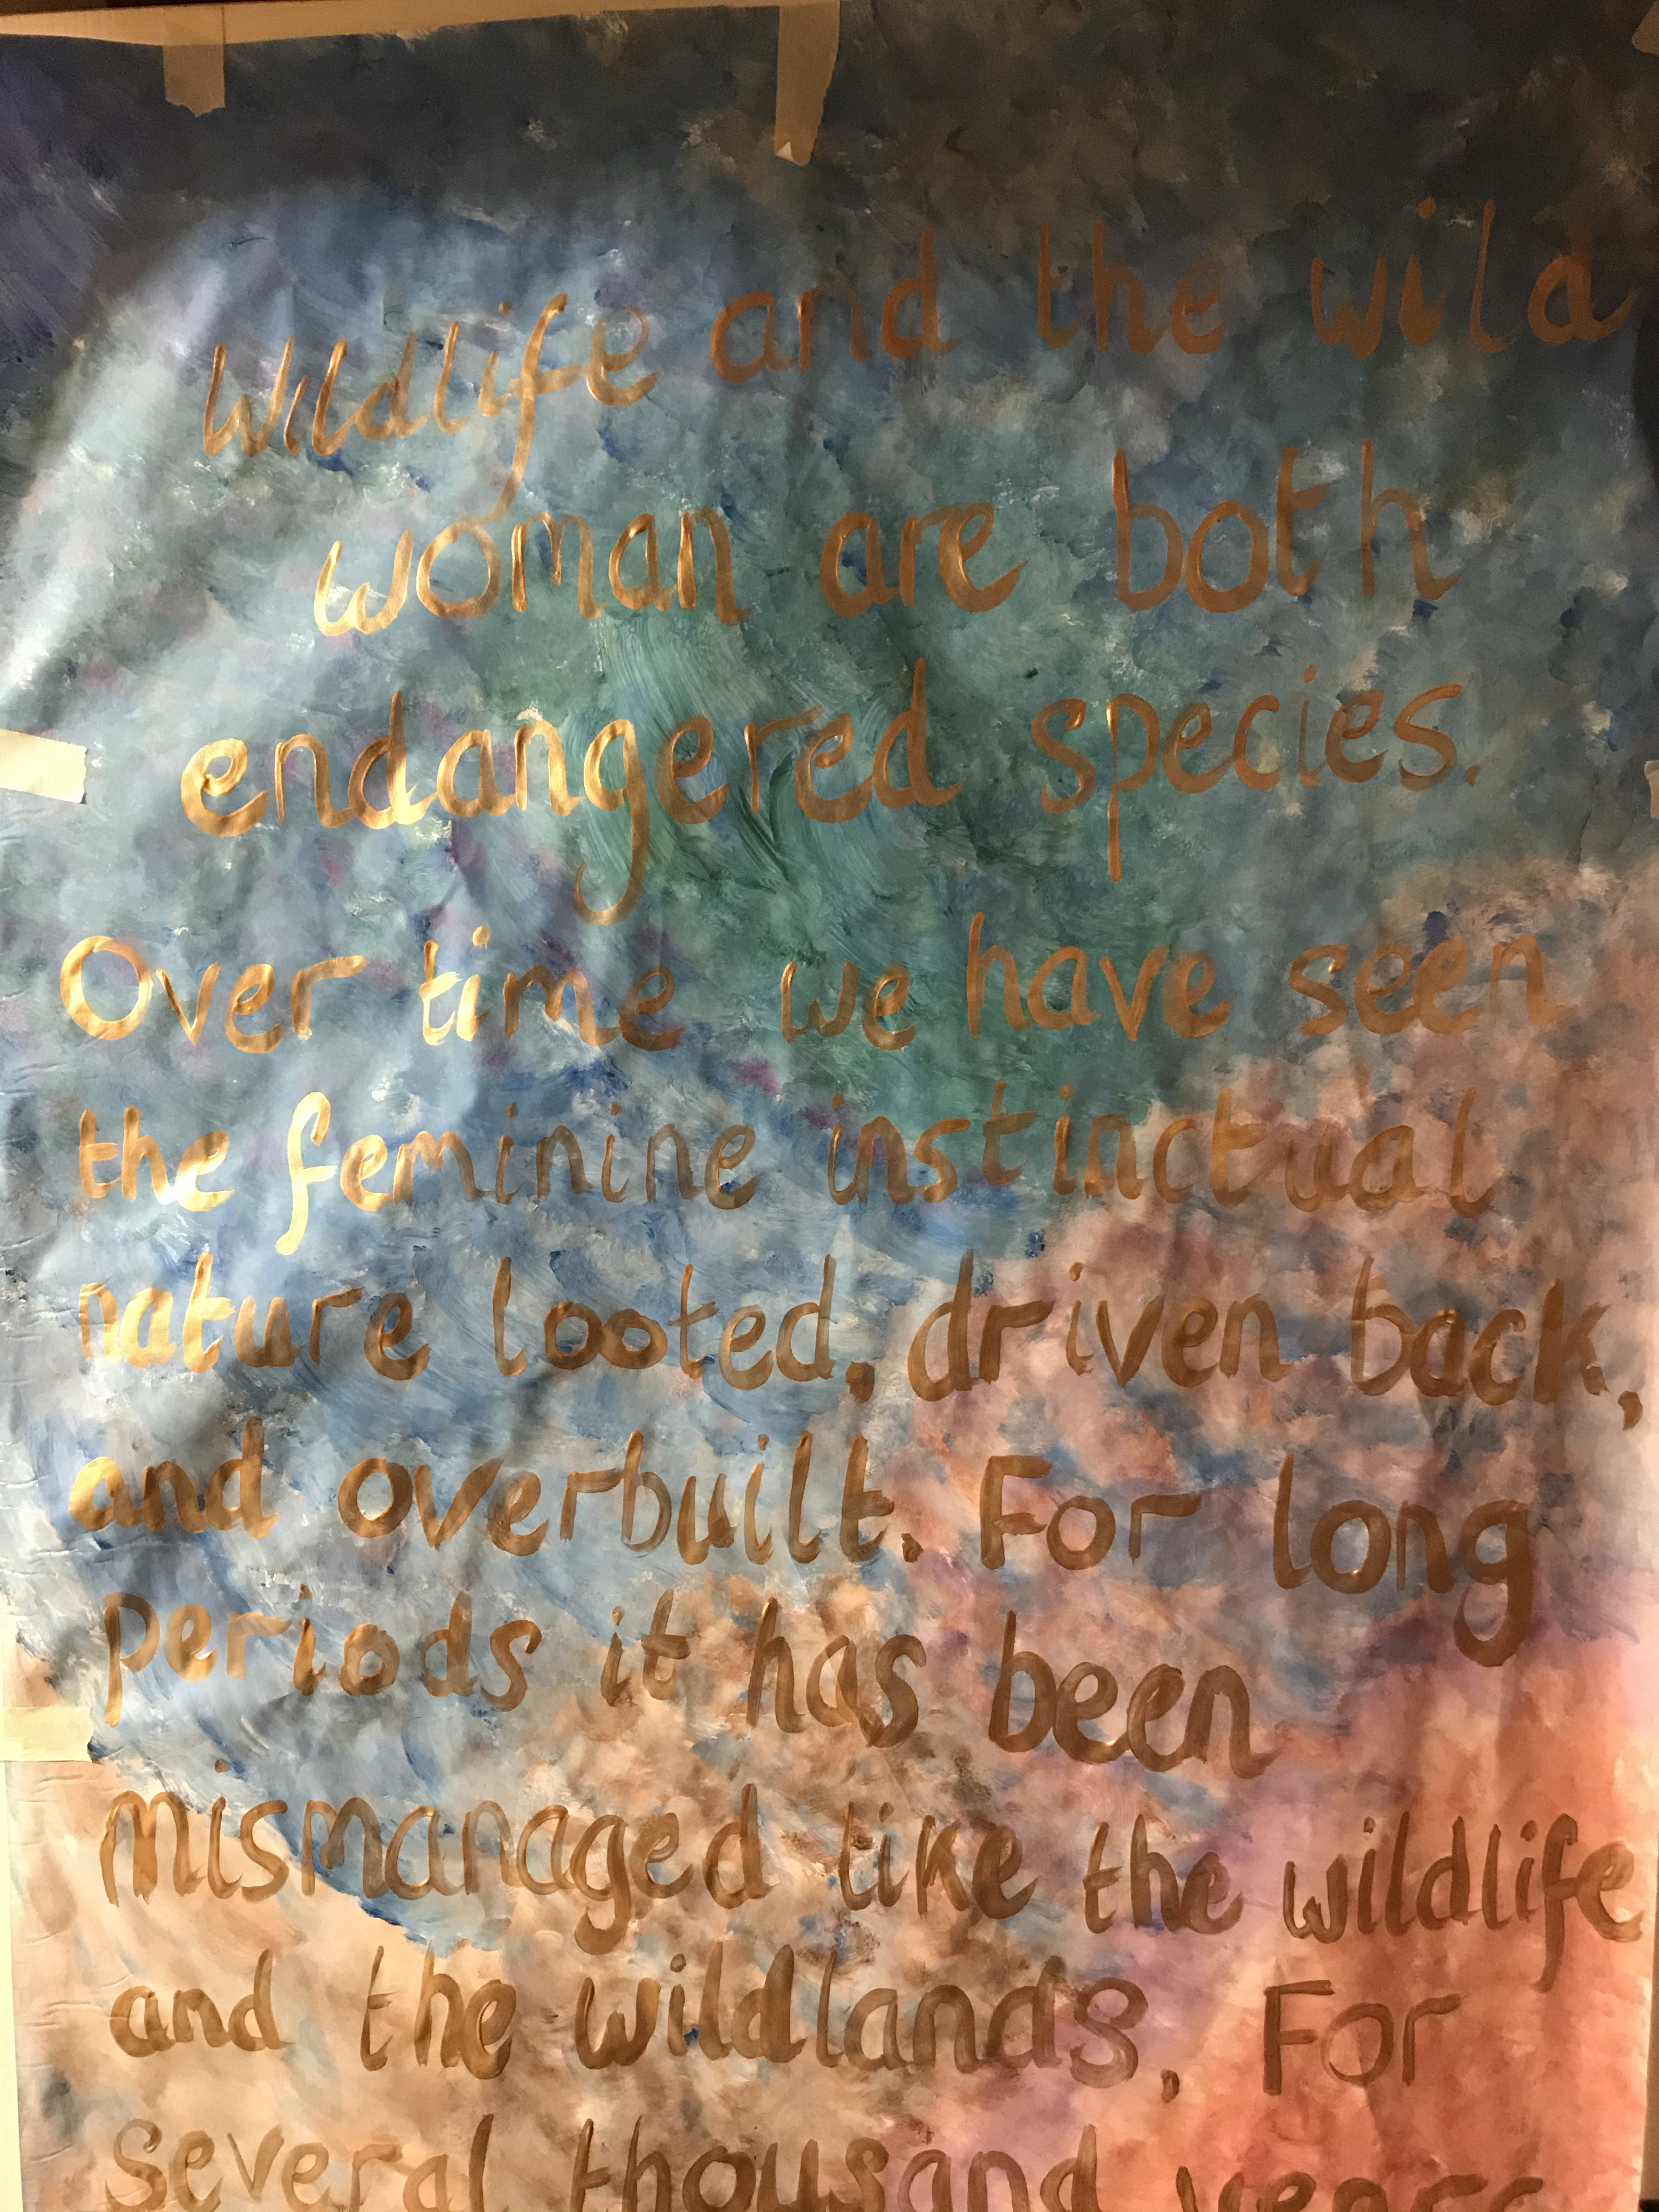 Wildlife and the wild
woman are both
endangered species.
Over time we have seen
the feminine instinctual
nature looted, driven back,
and overbuilt. For long
periods it has been
mismanaged like the wildlife
and the wildlands. For
several thousand years